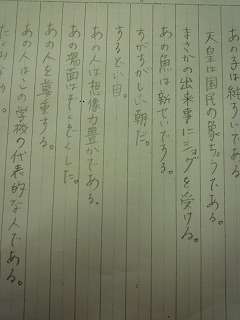 あの子は純すいである
天皇は国民の象ちょうである。
まさかの出来事にショックを受ける。
あの魚は新せんである。
すがすがしい朝だ。
するどい目。
あの人は想像力豊かである。
あの場面はぞくぞくした。
あの人を尊重する。
あの人はこの学校の代表的な人である。